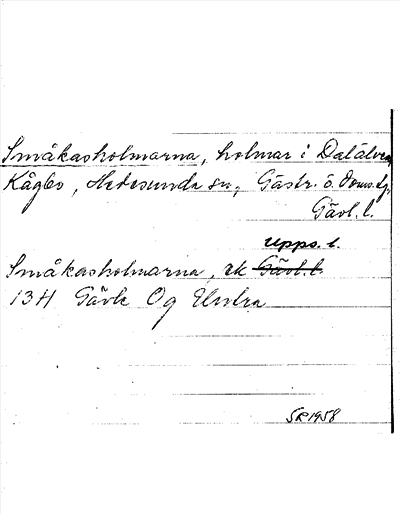 Småkasholmarna, holmar i Dalälven,
Kågbo, Hedesunda sn, Gästr. ö. doms.
Gävl. l.
Upps. l.
Småkasholmarna, ek Gävl. l.
13H Gävle Og
SR 1958